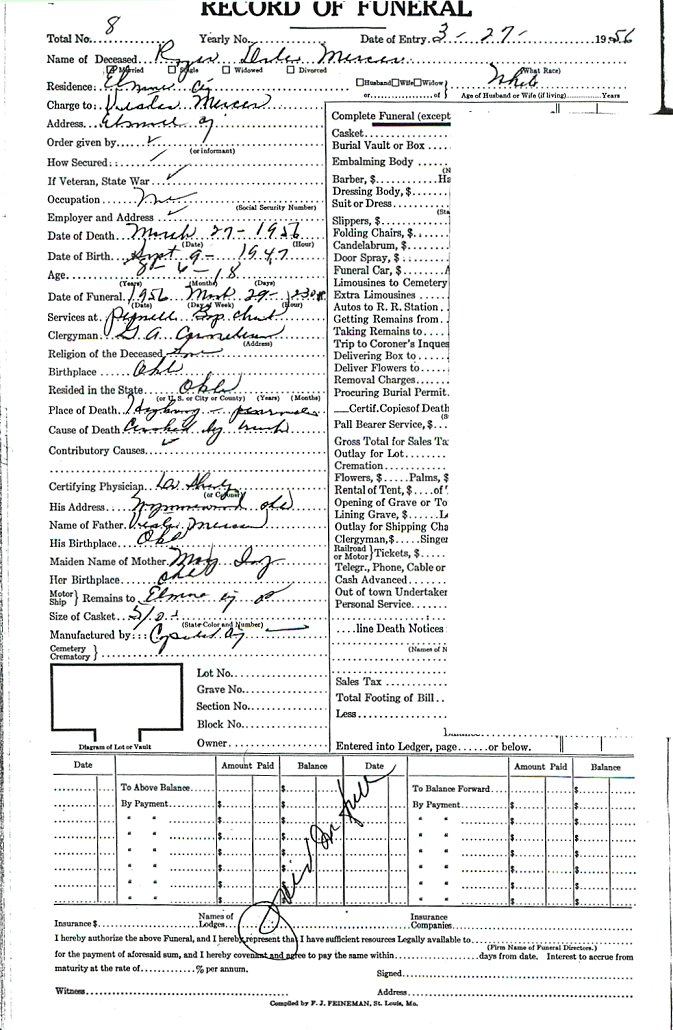 RECORD OF FUNERAL
Total No. 8 Yearly No. Date of Entry. 3-27- 1956
Name of Deceased Mercer
Married Single Widowed Divorced
(What Race)
Residence: Elmore Cy Husband Wife Widow White
or of Age of Husband or Wife (if living) Years
Charge to: Mercer
Address Elmore Cy
Order given by
(or informant)
How Secured:
If Veteran, State War
Occupation
(Social Security Number)
Employer and Address
Date of Death March 27-1956
(Date) (Hour)
Date of Birth Sept 9-1947
Age 8-6-18
(Years) (Months) (Days)
Date of Funeral 1956 March 29- 2:30
(Date) (Day of Week) (Hour)
Services at Bap church
Clergyman G. A.
(Address)
Religion of the Deceased
Birthplace Okl
Resided in the State Okla
(or U. S. or City or County) (Years) (Months)
Place of Death Highway
Cause of Death Crushed by truck
Contributory Causes
Certifying Physician Dr
(or Coroner)
His Address Wynnewood Okl
Name of Father Mercer
His Birthplace Okl
Maiden Name of Mother May
Her Birthplace Okl
Motor Ship } Remains to Elmore Cy
Size of Casket 5/0
(State Color and Number)
Manufactured by:
Cemetery Crematory }
Lot No.
Grave No.
Section No.
Block No.
Owner
Diagram of Lot or Vault
Complete Funeral (except
Casket
Burial Vault or Box
Embalming Body
(N
Barber, $ Ha
Dressing Body, $
Suit or Dress
(Sta
Slippers, $
Folding Chairs, $
Candelabrum, $
Door Spray, $
Funeral Car, $
Limousines to Cemetery
Extra Limousines
Autos to R. R. Station
Getting Remains from
Taking Remains to
Trip to Coroner's Inques
Delivering Box to
Deliver Flowers to
Removal Charges
Procuring Burial Permit
Certif. Copies of Death
(S
Pall Bearer Service, $
Gross Total for Sales Ta
Outlay for Lot
Cremation
Flowers, $ Palms, $
Rental of Tent, $ of
Opening of Grave or To
Lining Grave, $ L
Outlay for Shipping Cha
Clergyman, $ Singer
Railroad or Motor } Tickets, $
Telegr., Phone, Cable or
Cash Advanced
Out of town Undertaker
Personal Service
line Death Notices
(Names of N
Sales Tax
Total Footing of Bill
Less
Entered into Ledger, page or below.
Date Amount Paid Balance Date Amount Paid Balance
To Above Balance $ To Balance Forward $ $
By Payment $ $ By Payment $ $
" " $ $ " " $ $
" " $ $ " " $ $
" " $ $ " " $ $
" " $ $ " " $ $
" " $ $ " " $ $
Paid In full
Insurance $ Names of Lodges Insurance Companies
I hereby authorize the above Funeral, and I hereby represent that I have sufficient resources Legally available to
(Firm Name of Funeral Directors.)
for the payment of aforesaid sum, and I hereby covenant and agree to pay the same within days from date. Interest to accrue from
maturity at the rate of % per annum.
Signed
Witness Address
Compiled by F. J. FEINEMAN, St. Louis, Mo.